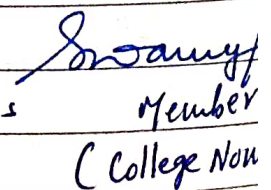 Swamy
s Member
( College Nom